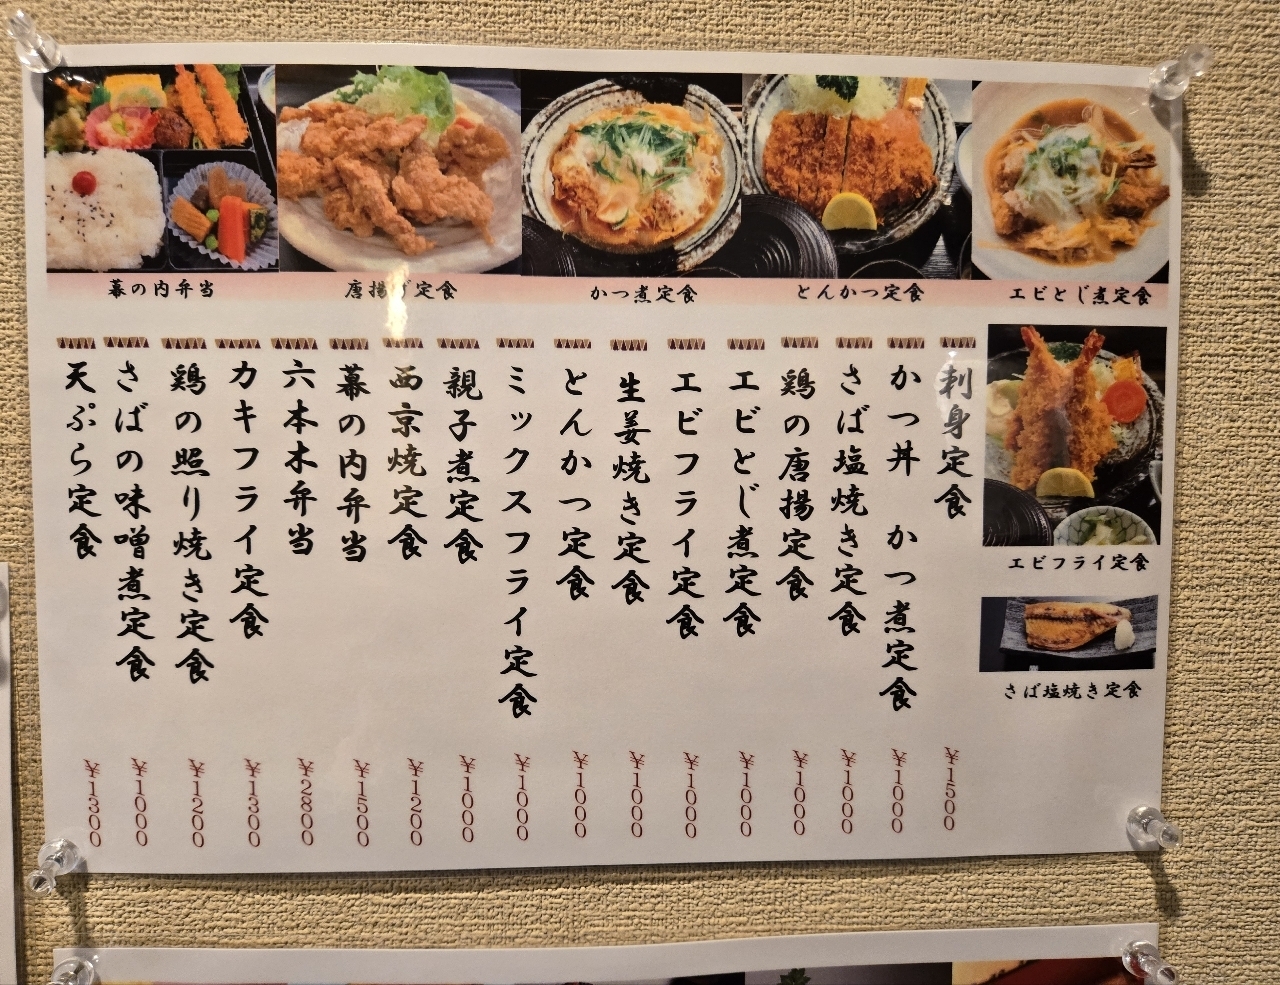 幕の内弁当
唐揚げ定食
かつ煮定食
とんかつ定食
エビとじ煮定食
エビフライ定食
さば塩焼き定食
刺身定食 ¥1500
かつ丼 かつ煮定食 ¥1000
さば塩焼き定食 ¥1000
鶏の唐揚定食 ¥1000
エビとじ煮定食 ¥1000
エビフライ定食 ¥1000
生姜焼き定食 ¥1000
とんかつ定食 ¥1000
ミックスフライ定食 ¥1000
親子煮定食 ¥1000
西京焼定食 ¥1200
幕の内弁当 ¥1500
六本木弁当 ¥2800
カキフライ定食 ¥1300
鶏の照り焼き定食 ¥1200
さばの味噌煮定食 ¥1000
天ぷら定食 ¥1300